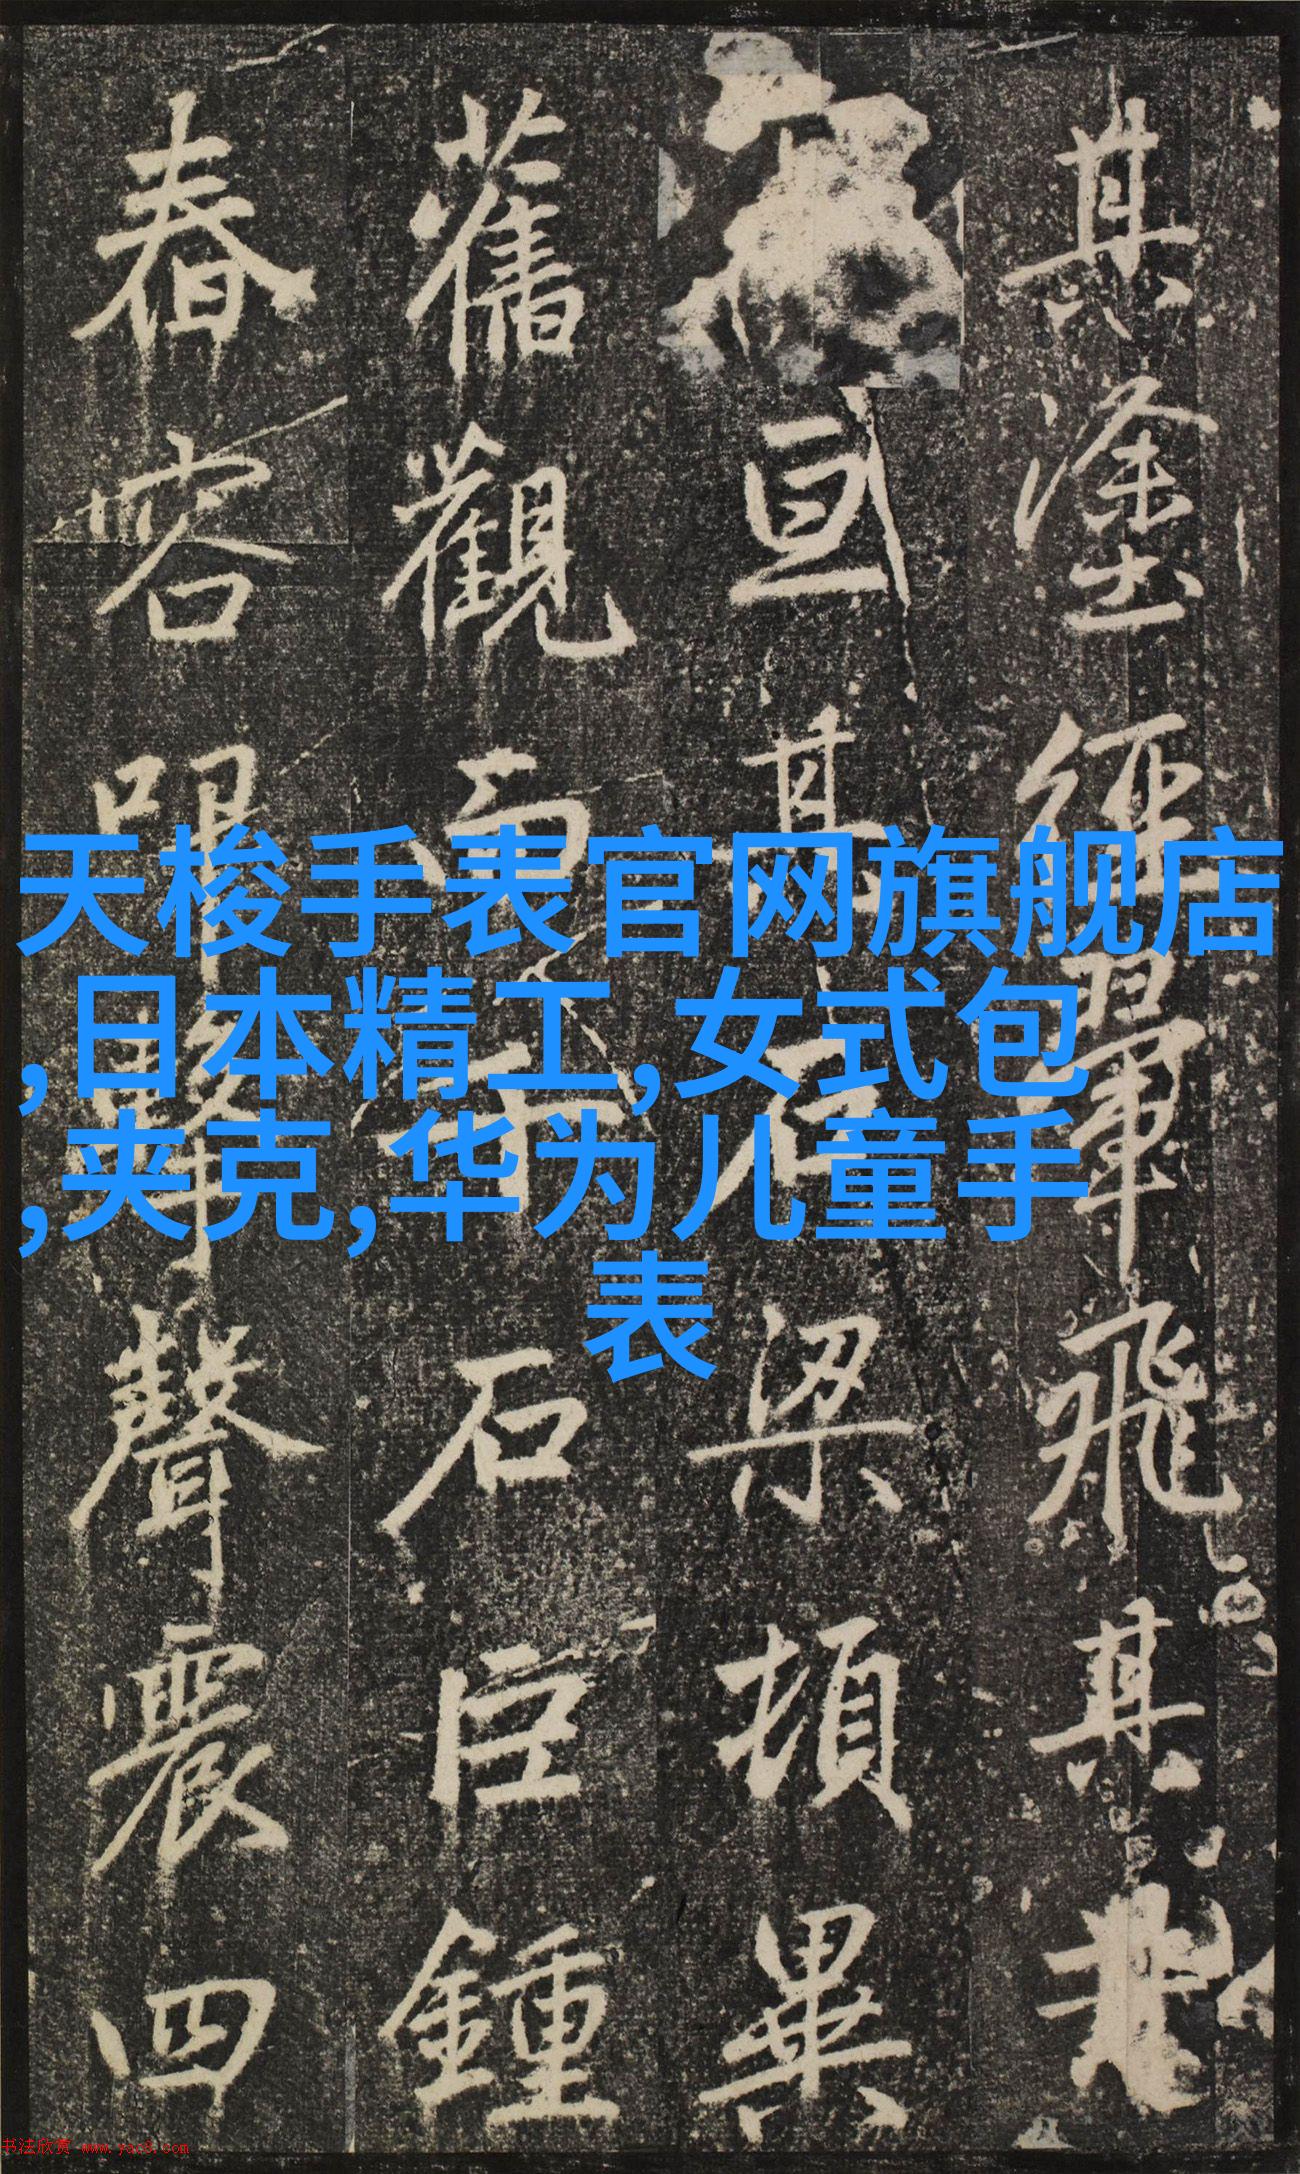 其塗經翬飛其
亘其梁頓異
舊觀而千石巨鍾
春容叩擊聲震四
天梭手表官网旗舰店
,日本精工,女式包
,夹克,华为儿童手
表
书法欣赏 www.yac8.com